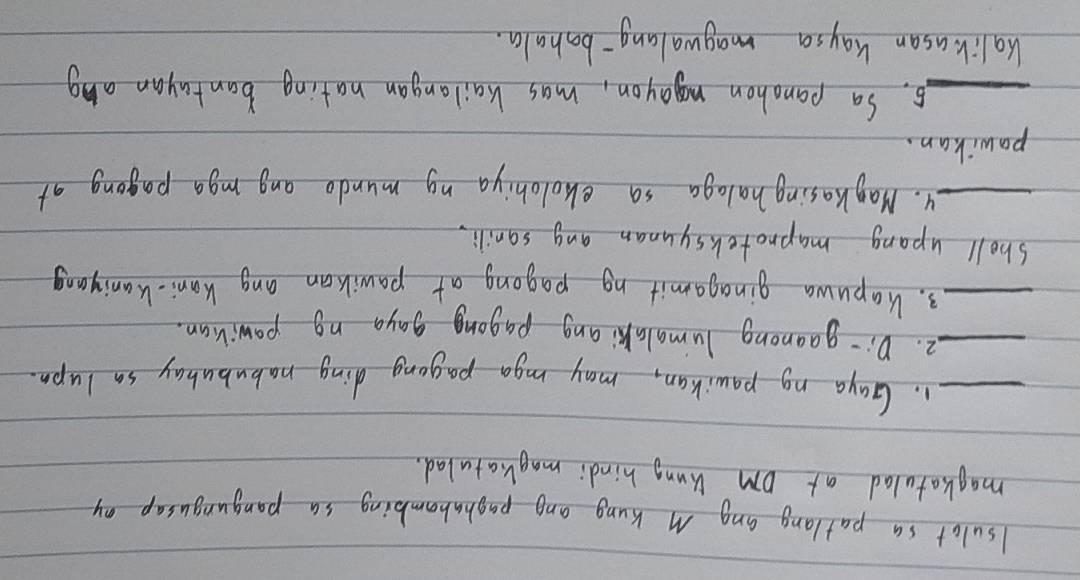 Isulat sa patlang ang M kung ang paghahambing sa pangungusap ay
magkatulad at DM kung hindi magkatulad.
1. Gaya ng pawikan, may mga pagong ding nabubuhay sa lupa.
2. Di-gaanong lumalaki ang pagong gaya ng pawikan.
3. Kapuwa ginagamit ng pagong at pawikan ang kani-kaniyang
shell upang maproteksyunan ang sarili.
4. Magkasinghalaga sa ekolohiya ng mundo ang mga pagong at
pawikan.
5. Sa panahon ngayon, mas kailangan nating bantayan ang
kalikasan kaysa magwalang-bahala.